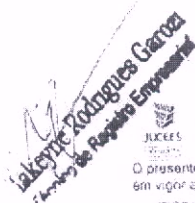 Jakeyne Rodrigues Garozi
Técnico de Registro Empresarial
JUCEES
O presente
em vigor a